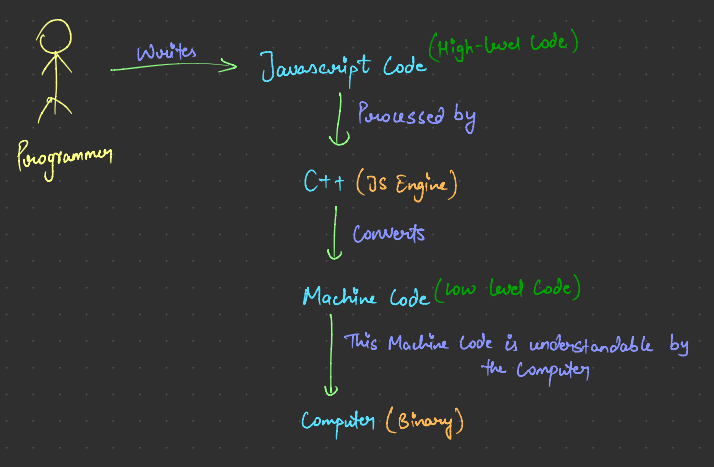 Writes
Javascript Code (High-level Code)
Programmer
Processed by
C++ (JS Engine)
Converts
Machine Code (Low level Code)
This Machine Code is understandable by
the Computer
Computer (Binary)